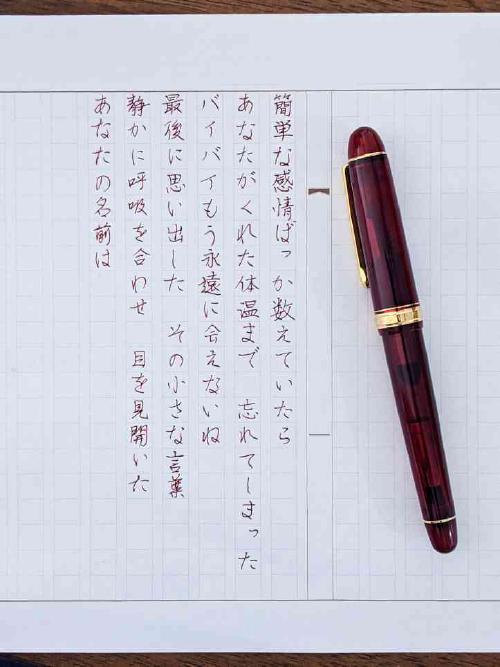 簡単な感情ばっか数えていたら
あなたがくれた体温まで　忘れてしまった
バイバイもう永遠に会えないね
最後に思い出した　その小さな言葉
静かに呼吸を合わせ　目を見開いた
あなたの名前は